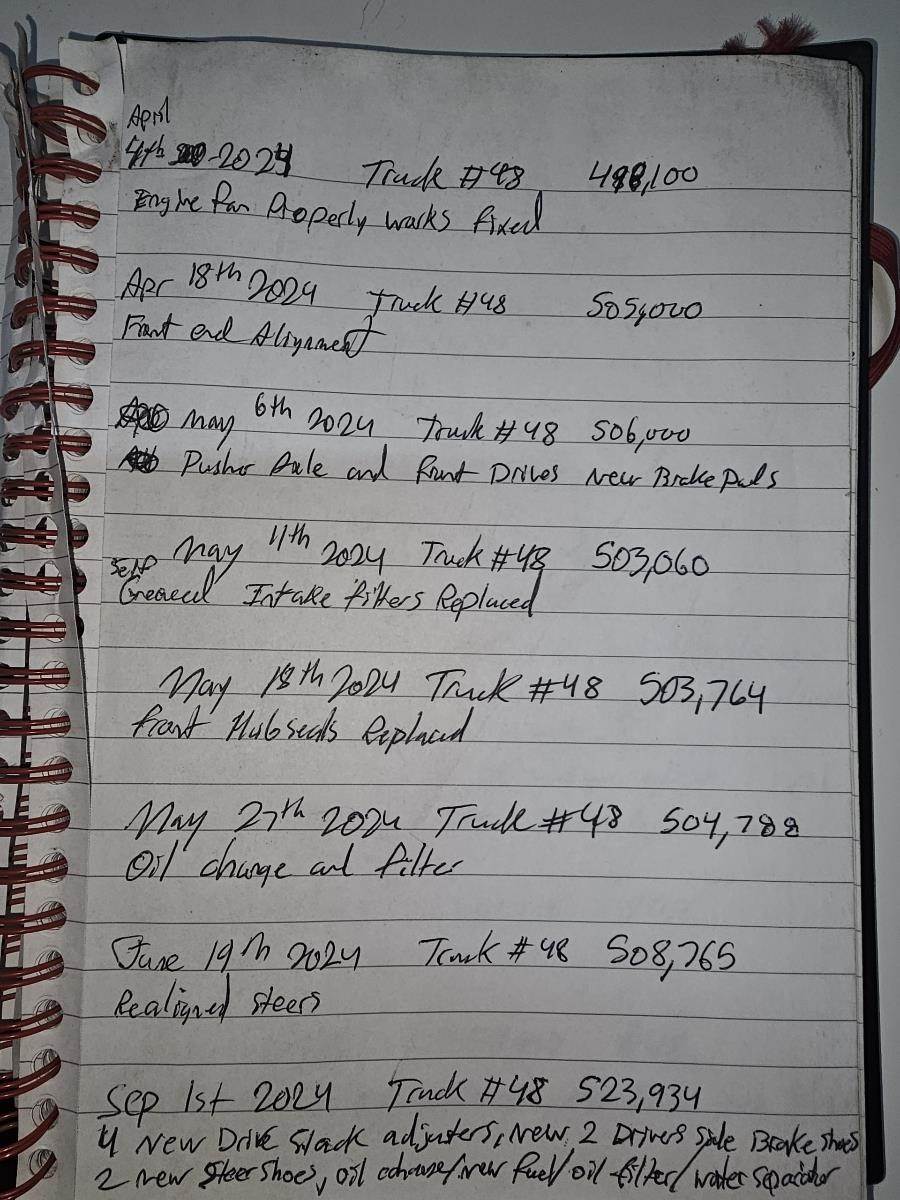 April
4th 2024 Truck #48 498,100
Engine fan Properly works fixed
Apr 18th 2024 Truck #48 505,000
Front end Alignment
May 6th 2024 Truck #48 506,000
Pusher Axle and front Drives New Brake Pads
May 11th 2024 Truck #48 503,060
Self
Greased Intake filters Replaced
May 18th 2024 Truck #48 503,764
front Hub seals Replaced
May 27th 2024 Truck #48 504,788
Oil change and filter
June 19th 2024 Truck #48 508,765
Realigned steers
Sep 1st 2024 Truck #48 523,934
4 New Drive Slack adjusters, New 2 Drivers Side Brake shoes
2 new steer shoes, oil change/new fuel/oil filter/water separator